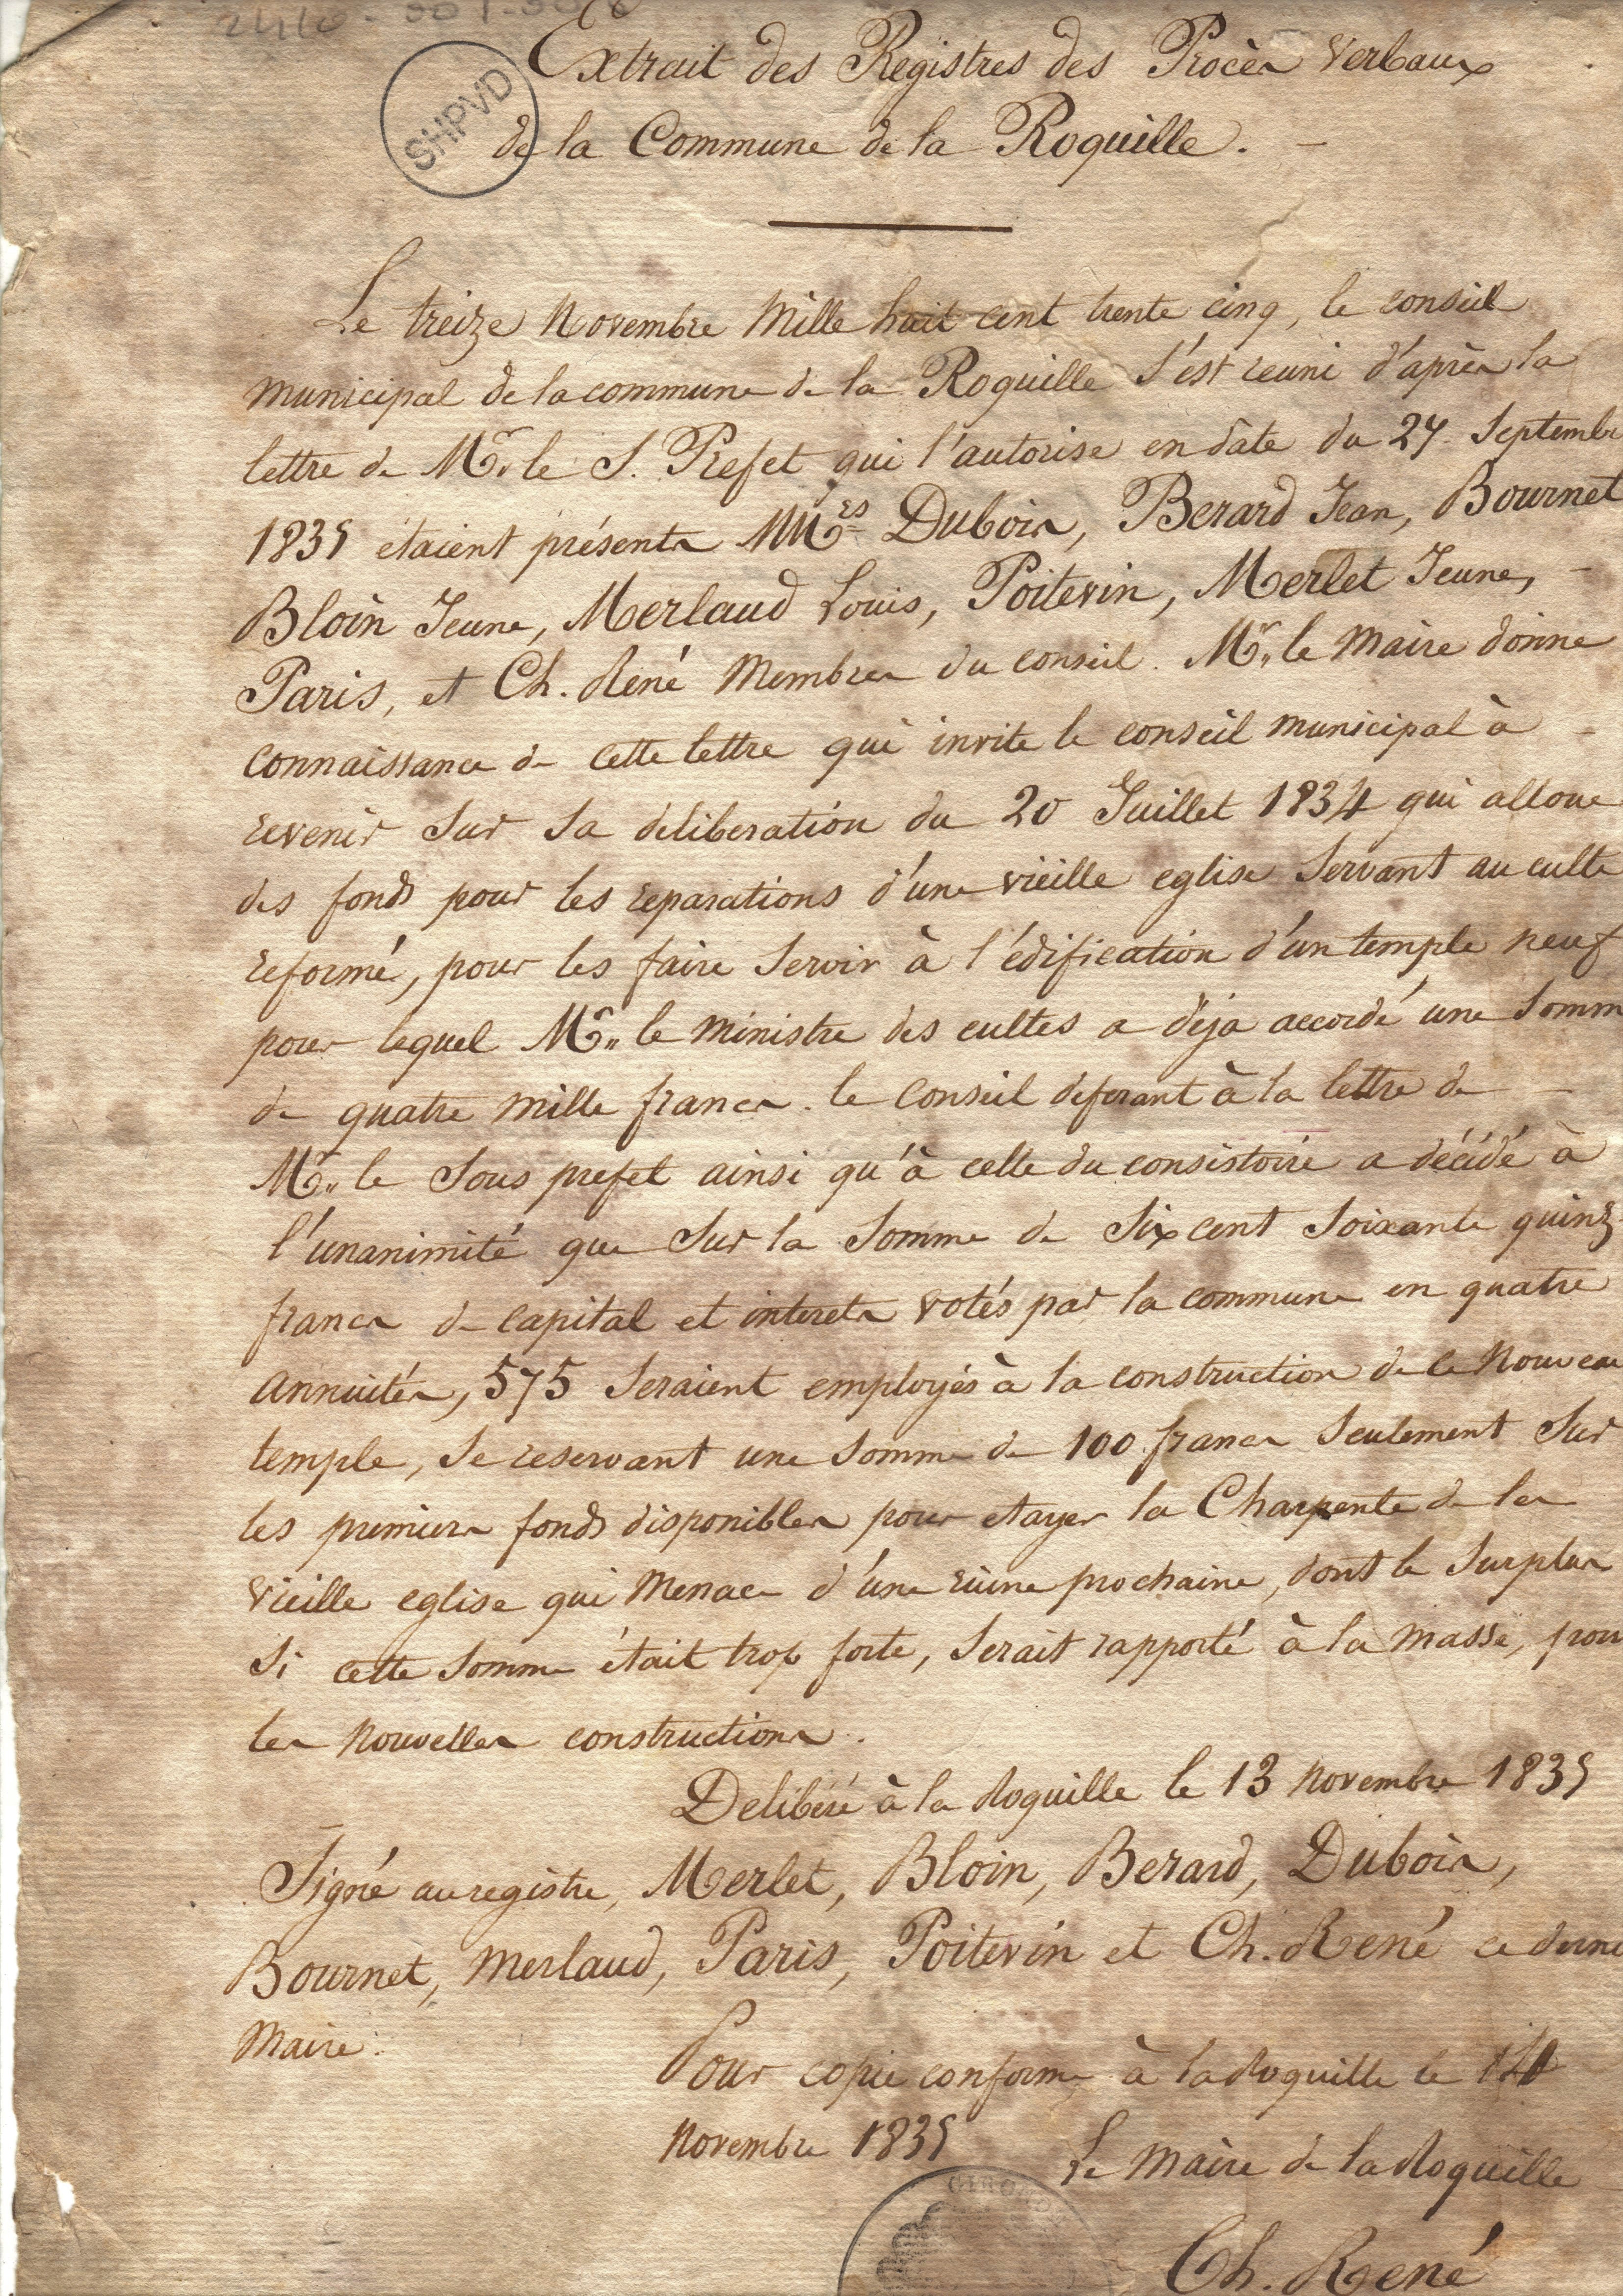 Extrait des Registres des Procès Verbaux
SHPVD
de la Commune de la Roquille. -
Le treize Novembre Mille huit cent trente cinq, le conseil
municipal de la commune de la Roquille s'est reuni d'après la
lettre de Mr. le S. Prefet qui l'autorise en date du 27 Septembr
1835 étaient présents MMrs Dubois, Berard Jean, Bournet
Bloin Jeune, Merlaud Louis, Poitevin, Merlet Jeune, -
Paris, et Ch. René Membres du conseil. Mr. le Maire donne
connaissance de cette lettre qui invite le conseil municipal à -
revenir sur sa deliberation du 20 Juillet 1834 qui alloue
des fonds pour les reparations d'une vieille eglise servant au culte
reformé, pour les faire servir à l'édification d'un temple neuf
pour lequel Mr. le Ministre des cultes a déja accordé une somm
de quatre mille francs. le Conseil deferant à la lettre de -
Mr. le Sous prefet ainsi qu'à celle du consistoire a décidé à
l'unanimité que sur la somme de Six cent soixante quinz
francs de capital et interets votés par la commune en quatre
annuités, 575 seraient employés à la construction de ce Nouveau
temple, se reservant une somme de 100 francs seulement sur
les premiers fonds disponibles pour etayer la Charpente de la
vieille eglise qui Menace d'une ruine prochaine, dont le surplus
si cette somme était trop forte, serait rapporté à la masse, pour
les Nouvelles constructions.
Delibéré à la Roquille le 13 Novembre 1835
Signé au registre, Merlet, Bloin, Berard, Dubois,
Bournet, Merlaud, Paris, Poitevin et Ch. René ce derni
Maire.
Pour copie conforme à la Roquille le 14
Novembre 1835
Le Maire de la Roquille
GIRONDE
Ch. René